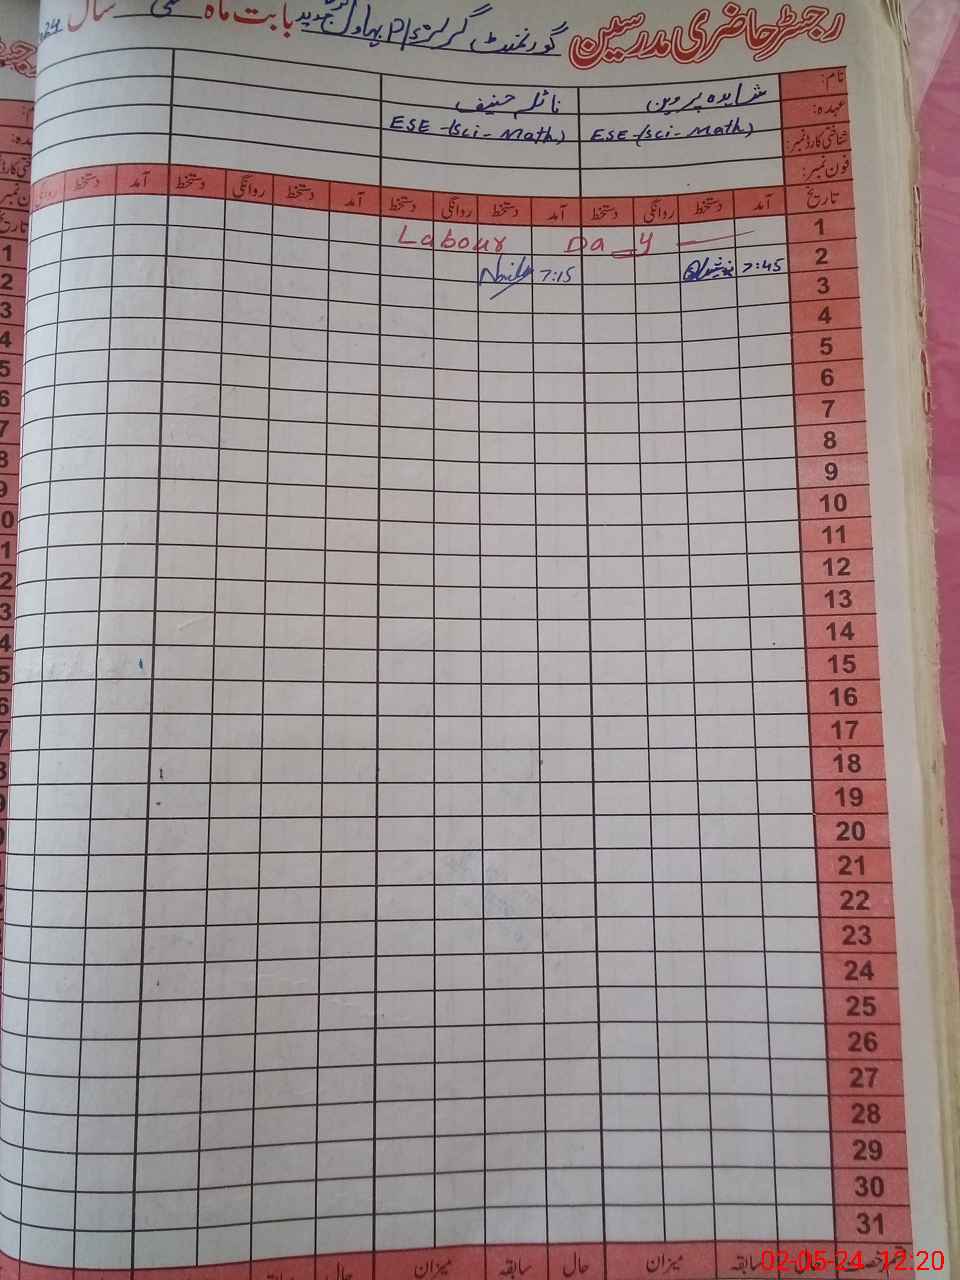 رجسٹر حاضری مدرسین گورنمنٹ گرلز P/S بابت ماہ مئی سال
نام: شاہدہ پروین نائلہ حنیف
عہدہ: ESE-(Sci-Math) ESE-(Sci-Math)
شناختی کارڈ نمبر:
فون نمبر:
تاریخ آمد دستخط روانگی دستخط آمد دستخط روانگی دستخط آمد دستخط روانگی دستخط آمد دستخط روانگی
1 Labour Day
2 7:45 7:15
3
4
5
6
7
8
9
10
11
12
13
14
15
16
17
18
19
20
21
22
23
24
25
26
27
28
29
30
31
سابقہ میزان حال سابقہ میزان حال
02-05-24 12:20